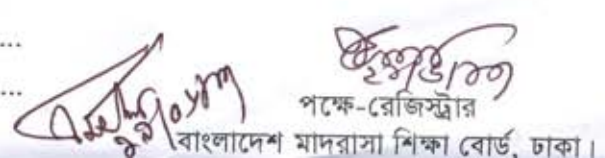 ...
...
পক্ষে-রেজিস্ট্রার
বাংলাদেশ মাদরাসা শিক্ষা বোর্ড, ঢাকা।